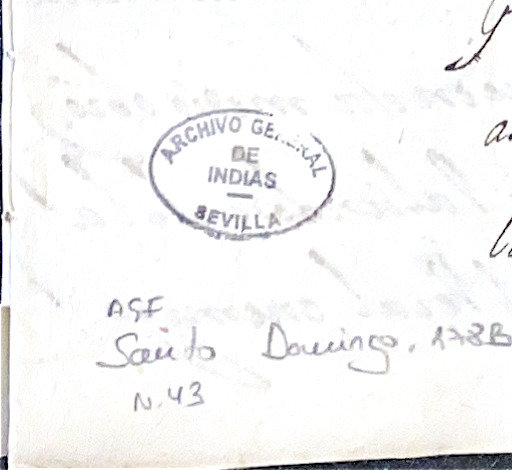 ARCHIVO GENERAL
DE
INDIAS
SEVILLA
AGI
Santo Domingo, 178B
N.43